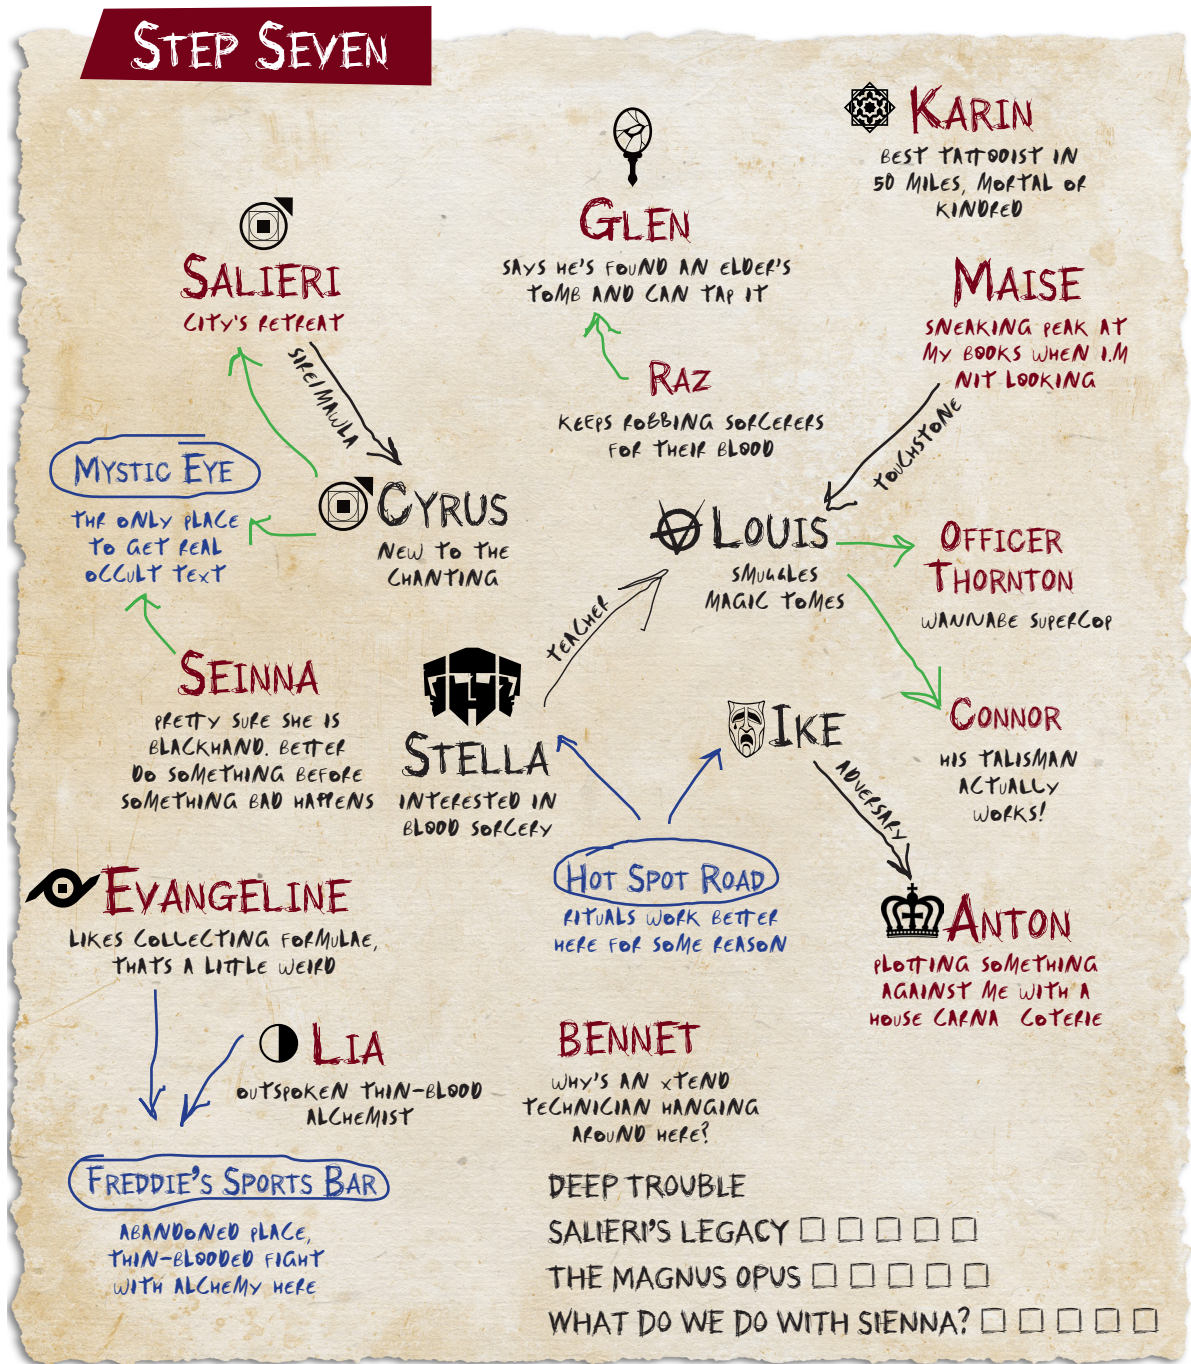 STEP SEVEN
KARIN
BEST TATTOOIST IN
50 MILES, MORTAL OR
KINDRED
GLEN
SAYS HE'S FOUND AN ELDER'S
TOMB AND CAN TAP IT
SALIERI
CITY'S RETREAT
SIRE/MAWLA
MAISE
SNEAKING PEAK AT
MY BOOKS WHEN I.M
NIT LOOKING
TOUCHSTONE
RAZ
KEEPS ROBBING SORCERERS
FOR THEIR BLOOD
MYSTIC EYE
THR ONLY PLACE
TO GET REAL
OCCULT TEXT
CYRUS
NEW TO THE
CHANTING
LOUIS
SMUGGLES
MAGIC TOMES
OFFICER
THORNTON
WANNABE SUPERCOP
TEACHER
SEINNA
PRETTY SURE SHE IS
BLACKHAND. BETTER
DO SOMETHING BEFORE
SOMETHING BAD HAPPENS
STELLA
INTERESTED IN
BLOOD SORCERY
IKE
ADVERSARY
CONNOR
HIS TALISMAN
ACTUALLY
WORKS!
HOT SPOT ROAD
RITUALS WORK BETTER
HERE FOR SOME REASON
EVANGELINE
LIKES COLLECTING FORMULAE,
THATS A LITTLE WEIRD
ANTON
PLOTTING SOMETHING
AGAINST ME WITH A
HOUSE CARNA COTERIE
LIA
OUTSPOKEN THIN-BLOOD
ALCHEMIST
BENNET
WHY'S AN XTEND
TECHNICIAN HANGING
AROUND HERE?
FREDDIE'S SPORTS BAR
ABANDONED PLACE,
THIN-BLOODED FIGHT
WITH ALCHEMY HERE
DEEP TROUBLE
SALIERI'S LEGACY
THE MAGNUS OPUS
WHAT DO WE DO WITH SIENNA?